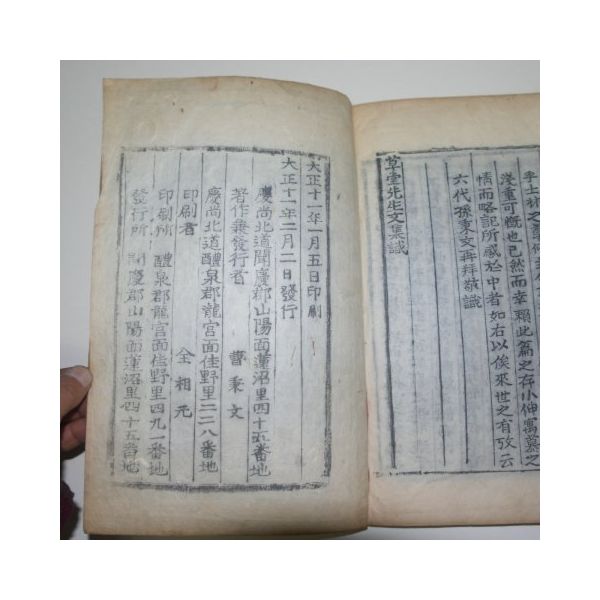 乎士林之
淺重可慨也已然而幸賴此篇之存小伸寓慕之
情而略記所感於中者如右以俟來世之有攷云
六代孫秉文再拜敬識
草堂先生文集識
大正十一年一月五日印刷
大正十一年二月二日發行
慶尙北道聞慶郡山陽面蓮沼里四十五番地
著作兼發行者 曹秉文
慶尙北道醴泉郡龍宮面佳野里二二八番地
印刷者 全相元
印刷所 醴泉郡龍宮面佳野里四九一番地
發行所 聞慶郡山陽面蓮沼里四十五番地